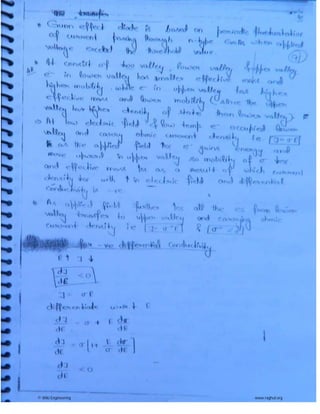 Gunn effect diode is based on periodic fluctuation
of current passing through n-type GaAs when applied
voltage exceed threshold value.
It consist of two valley, lower valley & upper valley
e⁻ in lower valley has smaller effective mass and
higher mobility while e⁻ in upper valley has higher
effective mass and lower mobility (since the upper
valley has higher density of state than lower valley)
At low electric field & low temp e⁻ occupied lower
valley and carry ohmic current density i.e. J=σE
as the applied field e⁻ gains energy and
move upward in upper valley so mobility of e⁻
and effective mass as a result of which current
density with ↑ in electric field and differential
conductivity is -ve
As applied field further all the es from lower
valley transfer to upper valley and carrying ohmic
current density i.e J=σE &
for -ve differential conductivity
E↑ J↓
dJ/dE < 0
J = σE
differentiate w.r.t E
dJ/dE = σ + E dσ/dE
dJ/dE = σ[1+ E/σ dσ/dE]
dJ/dE < 0
www.rejinpaul.org